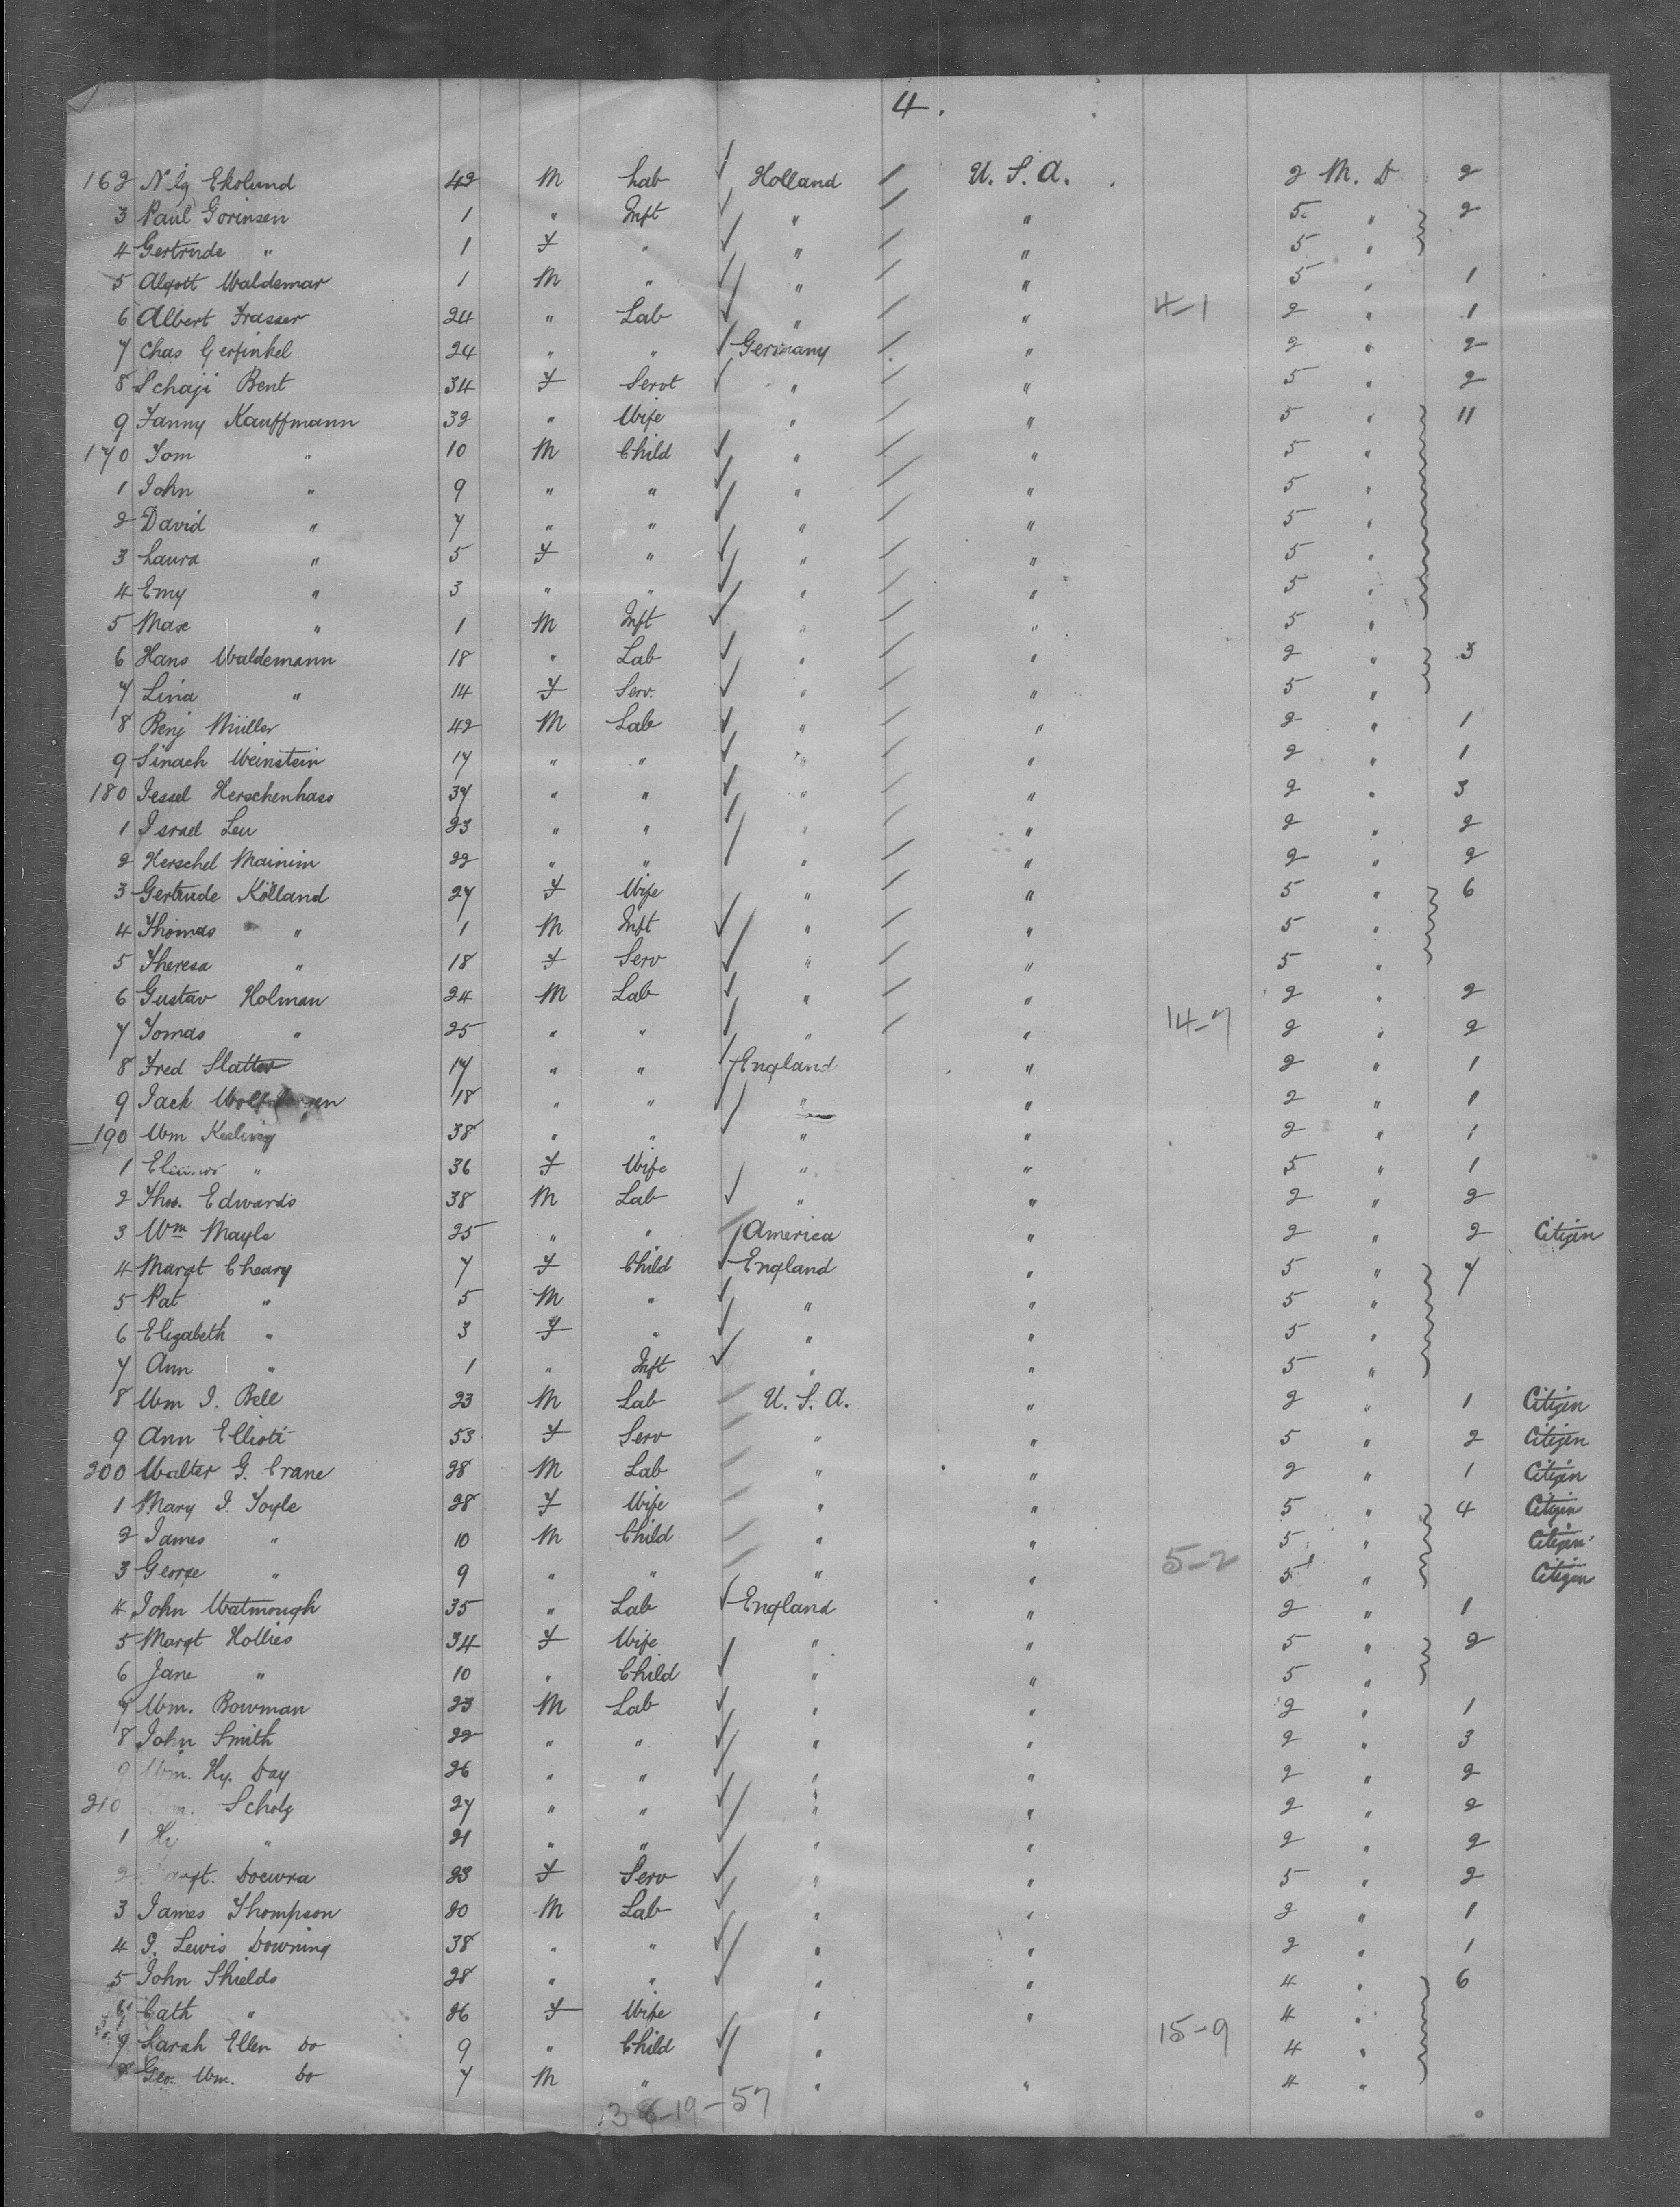 4.
162 Nlg Ekolund 42 M Lab Holland U. S. A. 2 M. D 2
3 Paul Gorinsen 1 " Inft " " 5 " 2
4 Gertrude " 1 F " " " 5 "
5 Algott Waldemar 1 M " " " 5 " 1
6 Albert Frasser 24 " Lab " " 4-1 2 " 1
7 Chas Gerfinkel 24 " " Germany " 2 " 2
8 Schaji Bent 34 F Servt " " 5 " 2
9 Fanny Kauffmann 32 " Wife " " 5 " 11
170 Tom " 10 M Child " " 5 "
1 John " 9 " " " " 5 "
2 David " 7 " " " " 5 "
3 Laura " 5 F " " " 5 "
4 Emy " 3 " " " " 5 "
5 Max " 1 M Inft " " 5 "
6 Hans Waldemann 18 " Lab " " 2 " 3
7 Lina " 14 F Serv. " " 5 "
8 Benj Müller 42 M Lab " " 2 " 1
9 Sinach Weinstein 17 " " " " 2 " 1
180 Jessel Herschenhass 37 " " " " 2 " 3
1 Israel Leu 23 " " " " 2 " 2
2 Herschel Mainim 22 " " " " 2 " 2
3 Gertrude Kölland 27 F Wife " " 5 " 6
4 Thomas " 1 M Inft " " 5 "
5 Theresa " 18 F Serv " " 5 "
6 Gustav Holman 24 M Lab " " 2 " 2
7 Tomas " 25 " " " " 14-7 2 " 2
8 Fred Slatter 17 " " England " 2 " 1
9 Jack 18 " " " " 2 " 1
190 Wm Keeling 38 " " " " 2 " 1
1 " 36 F Wife " " 5 " 1
2 Thos. Edwards 38 M Lab " " 2 " 2
3 Wm Mayle 25 " " America " 2 " 2 Citizen
4 Margt Cheary 7 F Child England " 5 " 7
5 Pat " 5 M " " " 5 "
6 Elizabeth " 3 F " " " 5 "
7 Ann " 1 " Inft " " 5 "
8 Wm J. Bell 23 M Lab U. S. A. " 2 " 1 Citizen
9 Ann Elliott 53 F Serv " " 5 " 2 Citizen
200 Walter G. Crane 28 M Lab " " 2 " 1 Citizen
1 Mary J. Toyle 28 F Wife " " 5 " 4 Citizen
2 James " 10 M Child " " 5 " Citizen
3 George " 9 " " " " 5-2 5 " Citizen
4 John Watmough 35 " Lab England " 2 " 1
5 Margt Hollies 34 F Wife " " 5 " 2
6 Jane " 10 " Child " " 5 "
7 Wm. Bowman 23 M Lab " " 2 " 1
8 John Smith 22 " " " " 2 " 3
9 Wm. Hy. Day 26 " " " " 2 " 2
210 Scholz 27 " " " " 2 " 2
1 Hy " 21 " " " " 2 " 2
2 Margt. Docwra 23 F Serv " " 5 " 2
3 James Thompson 20 M Lab " " 2 " 1
4 J. Lewis Downing 38 " " " " 2 " 1
5 John Shields 28 " " " " 4 " 6
6 Cath " 26 F Wife " " 4 "
7 Sarah Ellen do 9 " Child " 15-9 4 "
8 Geo. Wm. do 7 M " " " 4 "
38-19-57